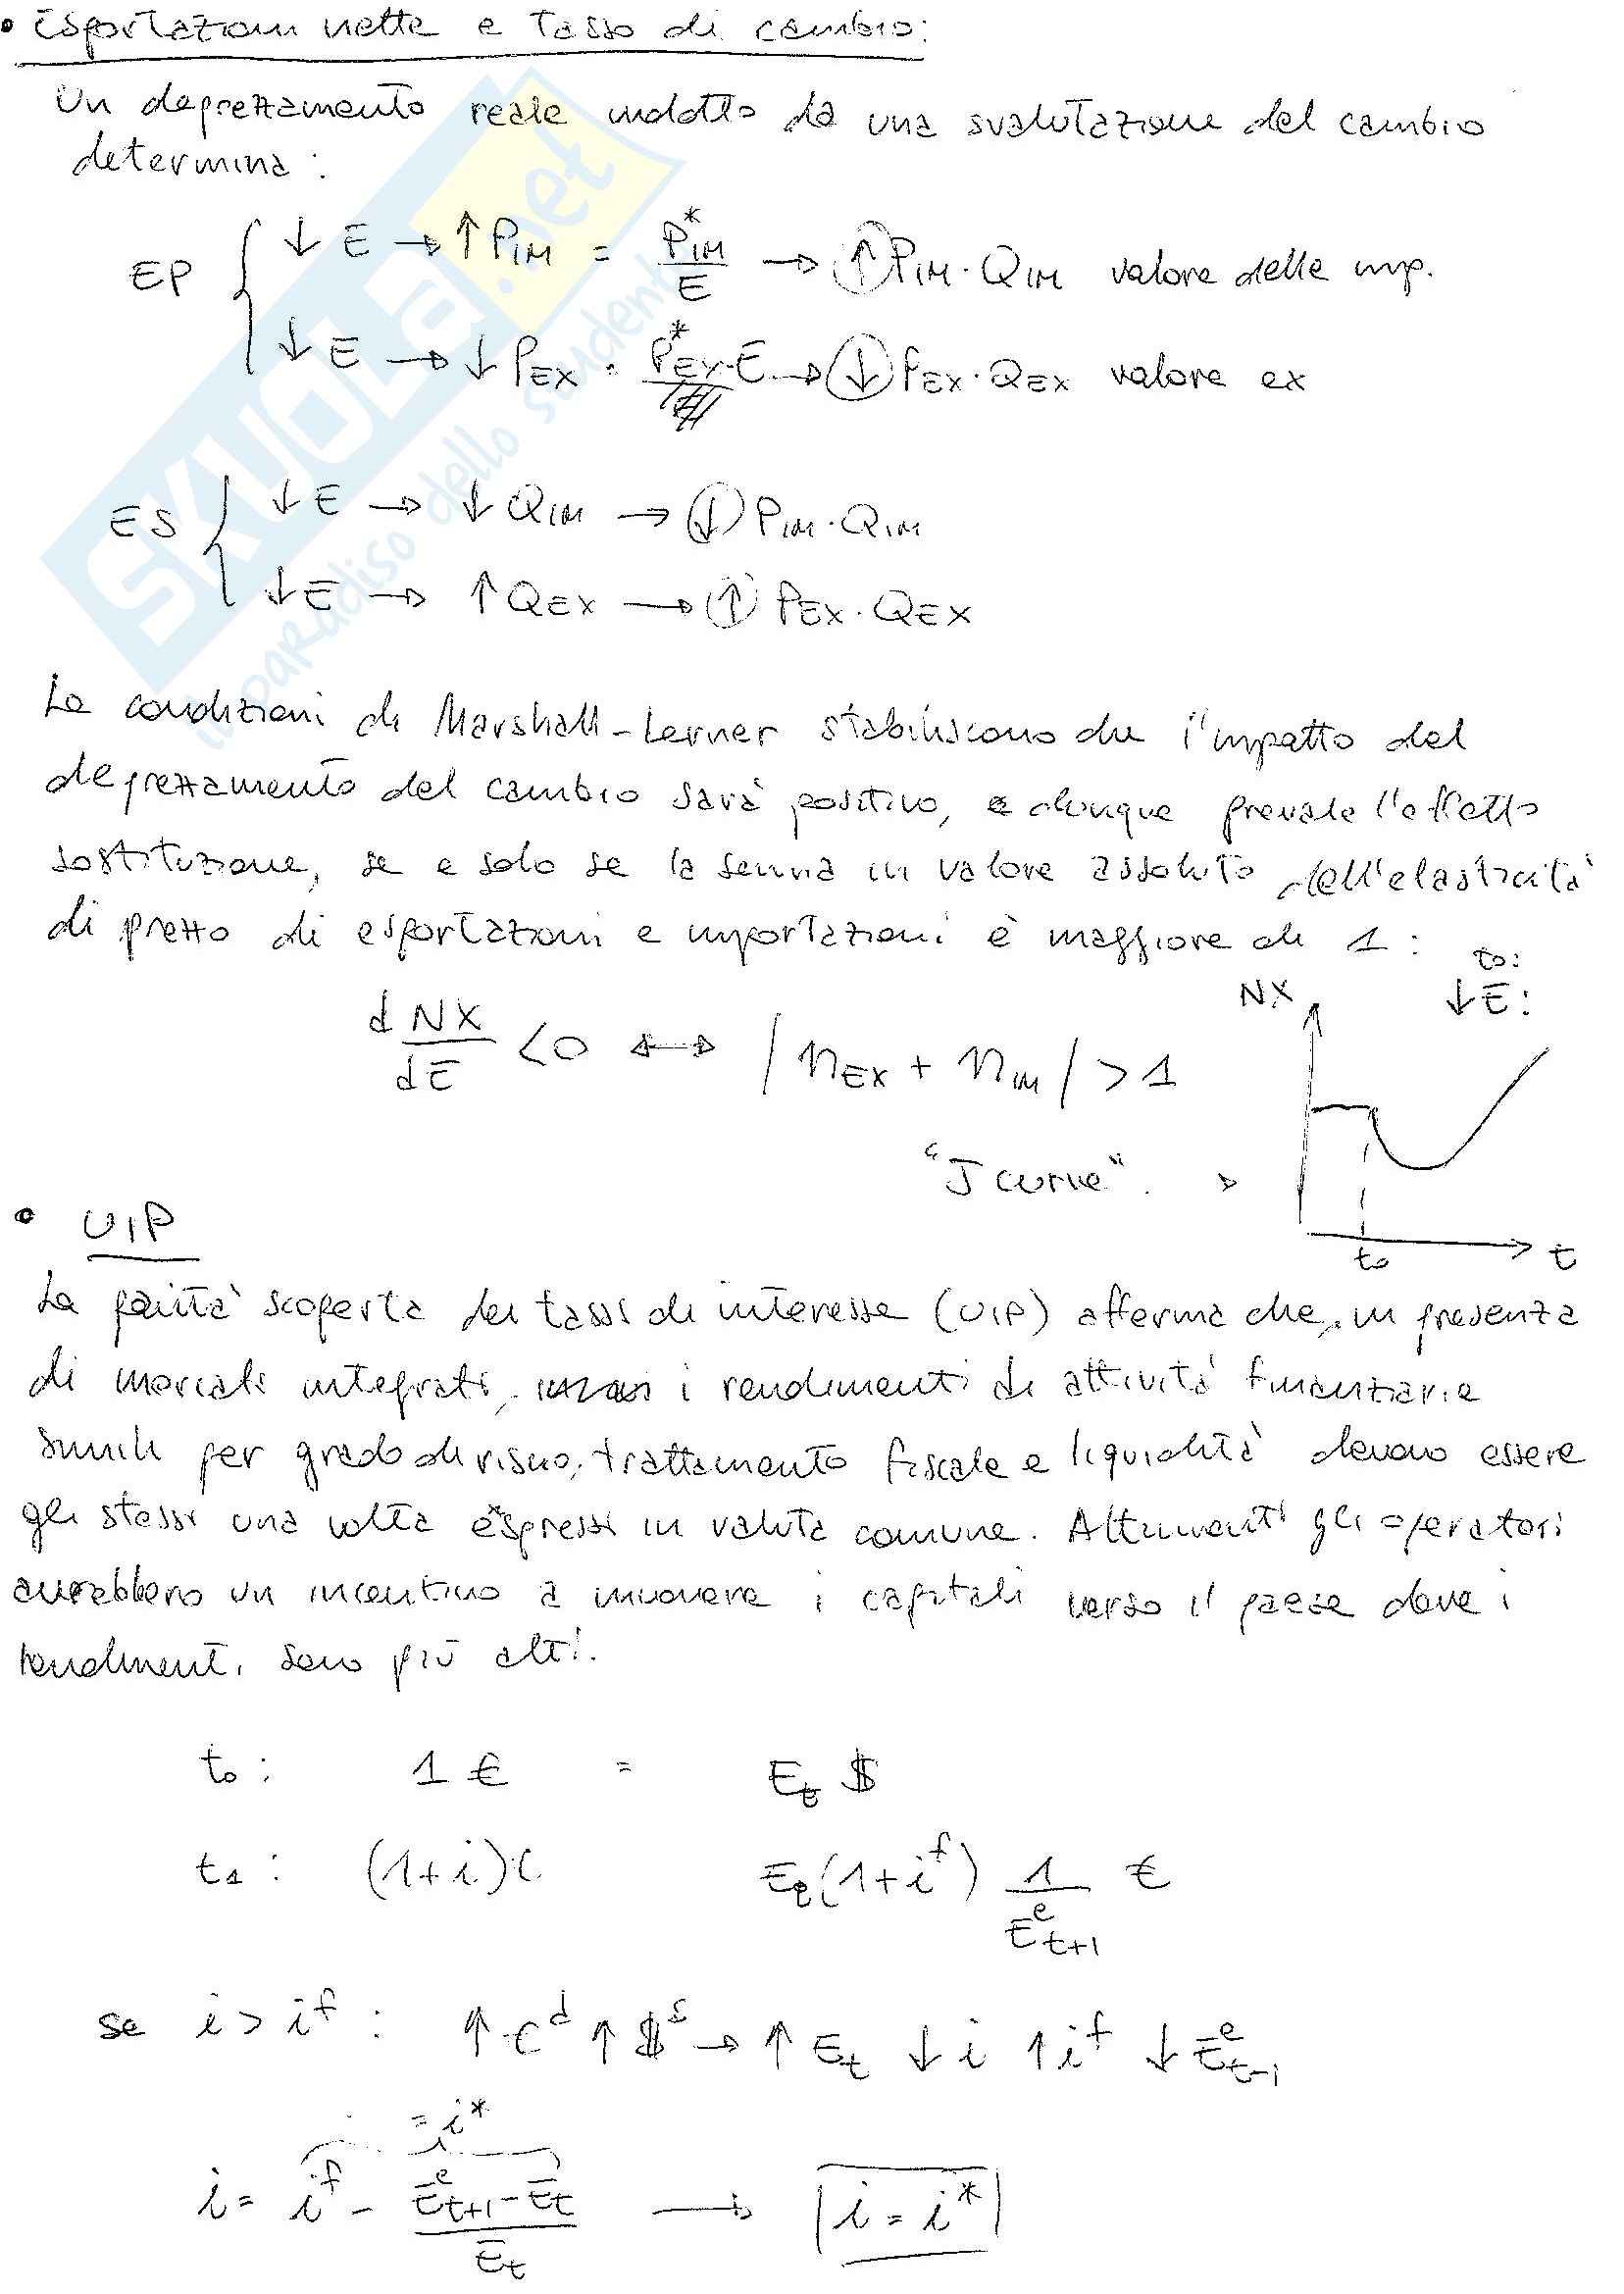 • Esportazioni nette e tasso di cambio:
Un deprezzamento reale indotto da una svalutazione del cambio
determina:
EP { ↓ E → ↑ P_IM = P*_IM / E → ↑ P_IM · Q_IM valore delle imp.
↓ E → ↓ P_EX = P*_EX · E → ↓ P_EX · Q_EX valore ex
ES { ↓ E → ↓ Q_IM → ↓ P_IM · Q_IM
↓ E → ↑ Q_EX → ↑ P_EX · Q_EX
Le condizioni di Marshall-Lerner stabiliscono che l'impatto del
deprezzamento del cambio sarà positivo, e dunque prevale l'effetto
sostituzione, se e solo se la somma in valore assoluto dell'elasticità
di prezzo di esportazioni e importazioni è maggiore di 1:
t0:
NX ↓ E:
dNX / dE < 0 ↔ | η_EX + η_IM | > 1
"J curve".
t0 t
• UIP
La parità scoperta dei tassi di interesse (UIP) afferma che, in presenza
di mercati integrati, i rendimenti di attività finanziarie
simili per grado di rischio, trattamento fiscale e liquidità devono essere
gli stessi una volta espressi in valuta comune. Altrimenti gli operatori
avrebbero un incentivo a muovere i capitali verso il paese dove i
rendimenti sono più alti.
t0: 1 € = E_t $
t1: (1+i) € E_t (1+i^f) 1 / E^e_t+1 €
se i > i^f : ↑ €^d ↑ $^s → ↑ E_t ↓ i ↑ i^f ↓ E^e_t-1
= i*
i = i^f - (E^e_t+1 - E_t) / E_t → i = i*
SKUOLA.net
il paradiso dello studente